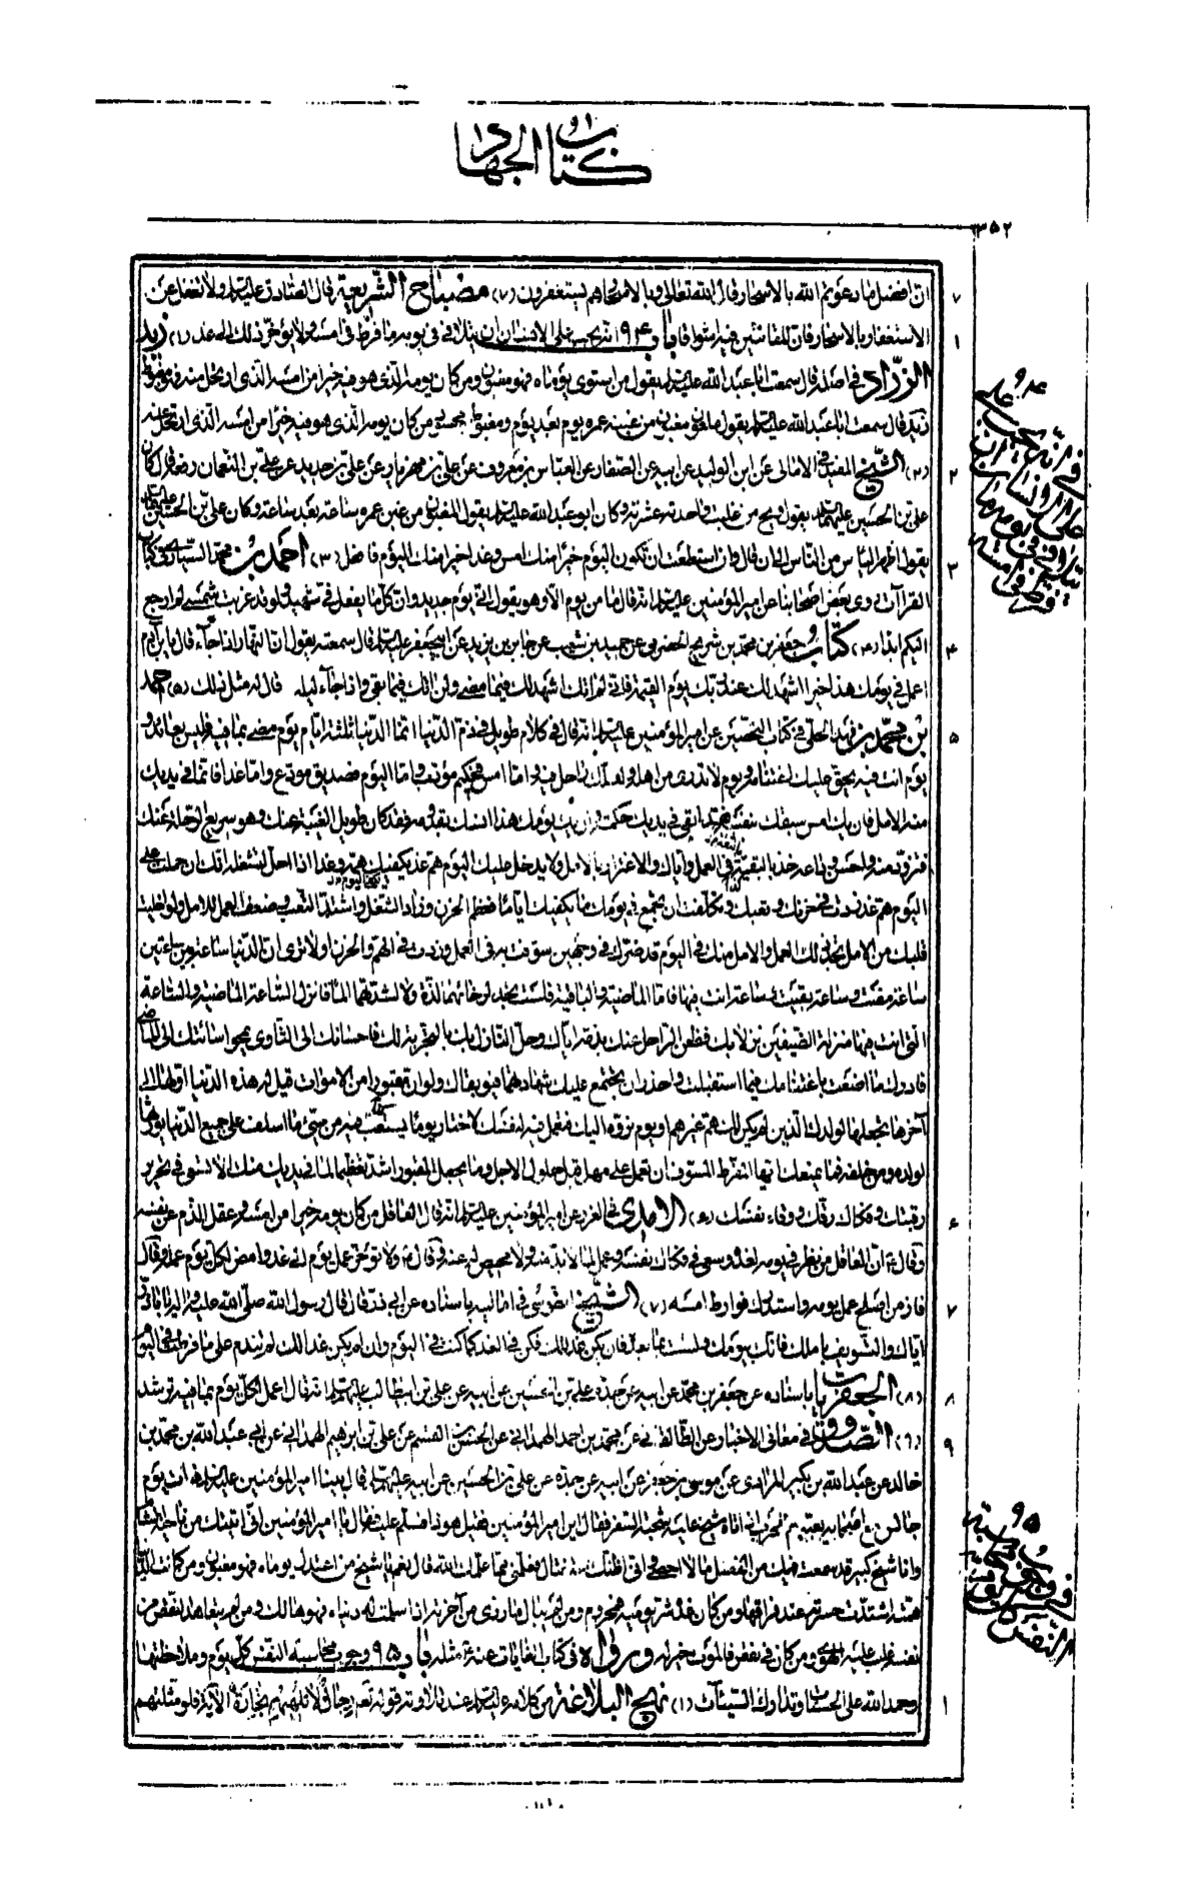 كتاب الجهاد
٣٥٢
ان افضل ما دعوتم الله بالاسحار قال الله تعالى وبالاسحار هم يستغفرون (٧) مصباح الشريعة قال الصادق عليه السلام ولا تغفل عن
الاستغفار بالاسحار فان للقانتين فيه اشواقا باب ٩٤ انه يجب على الانسان ان يتلافى في يومه ما فرط في امسه ولا يؤخر ذلك الى غد (١) زيد
الزراد في اصله قال سمعت ابا عبد الله عليه السلام يقول من استوى يوماه فهو مغبون ومن كان يومه الذي هو فيه خيرا من امسه الذي ارتحل منه فهو مغبوط
زيد قال سمعت ابا عبد الله عليه السلام يقول مغبون من غبن عمره يوم بعد يوم ومغبوط محسود من كان يومه الذي هو فيه خيرا من امسه الذي ارتحل عنه
(٢) الشيخ المفيد في الامالي عن ابن الوليد عن ابيه عن الصفار عن العباس بن معروف عن علي بن مهزيار عن علي بن حديد عن علي بن النعمان رفعه قال كان
علي بن الحسين عليهما السلام يقول ويح من غلبت واحدته عشرته وكان ابو عبد الله عليه السلام يقول المغبون من غبن عمره ساعة بعد ساعة وكان علي بن الحسين عليهما السلام
يقول اظهر الياس من الناس الى ان قال وان استطعت ان تكون اليوم خيرا منك امس وغدا خيرا منك اليوم فافعل (٣) احمد بن محمد السياري في كتاب
القراآت روى بعض اصحابنا عن امير المؤمنين عليه السلام انه قال ما من يوم الا وهو يقول اني يوم جديد وان كل ما يفعل في شهيد ولو قد غربت شمسي لم ارجع
اليكم ابدا (٤) كتاب جعفر بن محمد بن شريح الحضرمي عن حميد بن شعيب عن جابر بن يزيد عن ابي جعفر عليه السلام قال سمعته يقول ان النهار اذا جاء قال يا بن آدم
اعمل في يومك هذا خيرا اشهد لك عند ربك يوم القيمة فاني لم اتك اشهد لك فيما مضى ولن اتك فيما بقي واذا جاء ليله قال له مثل ذلك (٥) احمد
بن محمد بن فهد الحلي في كتاب التحصين عن امير المؤمنين عليه السلام انه قال في كلام طويل في ذم الدنيا انما الدنيا ثلثة ايام يوم مضى بما فيه فليس بعائد و
يوم انت فيه يحق عليك اغتنامه ويوم لا تدري من اهله ولعلك راحل فيه واما امس فحكيم مؤدب واما اليوم فصديق مودع واما غدا فانما في يديك
منه الامل فان يك امس سبقك بنفسه فقد ابقى في يديك حكمته وان يك يومك هذا انسك بقدومه فقد كان طويل الغيبة عنك وهو سريع الرحلة عنك
فتزود منه واحسن وداعه خذ بالبقية في العمل واياك والاغترار بالامل ولا يدخل عليك اليوم هم غد يكفيك همه وغدا اذا احل لتشغله انك ان حملت على
اليوم هم غد زدت في حزنك وتعبك وتكلفت ان تجمع في يومك ما يكفيك اياما فعظم الحزن وزاد الشغل واشتد التعب وضعف العمل للامل ولو اخليت
قلبك من الامل تجد ذلك العمل والامل منك في اليوم قد ضرك في وجهين سوفت به في العمل وزدت في الهم والحزن اولا ترى ان الدنيا ساعة بين ساعتين
ساعة مضت وساعة بقيت وساعة انت فيها فاما الماضية والباقية فلست تجد لرخائهما لذة ولا لشدتهما الما فانزل الساعة الماضية والساعة
التي انت فيها منزلة الضيفين نزلا بك فظعن الراحل عنك بذمه اياك وحل النازل بك بالتجربة لك فاحسانك الى الثاوي يمحو اسائتك الى الماضي
فادرك ما اضعت باغتنامك فيما استقبلت واحذر ان تجتمع عليك شهادتهما فيوبقاك ولو ان مقبورا من الاموات قيل له هذه الدنيا اولها الى
آخرها تجعلها لولدك الذين لم يكن لك هم غيرهم او يوم نرده اليك فتعمل فيه لنفسك لاختار يوما يستعتب فيه من سيئ ما اسلف على جميع الدنيا يورثها
لولده ومن خلفه فما يمنعك ايها المفرط المسوف ان تعمل على مهل قبل حلول الاجل وما يجعل المقبور اشد تعظيما لما في يديك منك الا تسعى في تحرير
رقبتك وفكاك رقك ووقاء نفسك (٦) الآمدي في الغرر عن امير المؤمنين عليه السلام انه قال العاقل من كان يومه خيرا من امسه وعقل الذم عن نفسه
وقال ان العاقل من نظر في يومه لغده وسعى في فكاك نفسه وعمل لما لا بد منه ولا محيص له عنه وقال ولا تؤخر عمل يوم الى غد وامض لكل يوم عمله وقال
فاز من اصلح عمل يومه واستدرك فوارط امسه (٧) الشيخ الطوسي في اماليه باسناده عن ابي ذر قال قال رسول الله صلى الله عليه واله يا باذر
اياك والتسويف باملك فانك بيومك ولست بما بعده فان يكن غد لك فكن في الغد كما كنت في اليوم وان لم يكن غد لك لم تندم على ما فرطت في اليوم
(٨) الجعفريات باسناده عن جعفر بن محمد عن ابيه عن جده علي بن الحسين عن ابيه عن علي بن ابيطالب عليهم السلام انه قال اعمل لكل يوم بما فيه ترشد
(٩) الصدوق في معاني الاخبار عن الطالقاني عن محمد بن احمد الهمداني عن الحسن بن القسم عن علي بن ابرهيم الهمداني عن ابي عبد الله بن محمد بن
خالد عن عبد الله بن بكير المرادي عن موسى بن جعفر عن ابيه عن جده عن علي بن الحسين عن ابيه عليهم السلام قال بينا امير المؤمنين عليه السلام ذات يوم
جالس مع اصحابه يعبيهم للحرب اذ اتاه شيخ عليه شحبة السفر فقال اين امير المؤمنين فقيل هو ذا فسلم عليه فقال يا امير المؤمنين اني اتيتك من ناحية الشام
وانا شيخ كبير قد سمعت فيك من الفضل ما لا احصي واني اظنك ستغتال فعلمني مما علمك الله قال نعم يا شيخ من اعتدل يوماه فهو مغبون ومن كانت الدنيا
همته اشتدت حسرته عند فراقها ومن كان غده شر يوميه فمحروم ومن لم يبال ما رزى من آخرته اذا سلمت له دنياه فهو هالك ومن لم يتعاهد النقص من
نفسه غلب عليه الهوى ومن كان في نقص فالموت خير له ورواه في كتاب الغايات عنه مثله باب ٩٥ وجوب محاسبة النفس كل يوم وملاحظتها
وحمد الله على الحسنات وتدارك السيئات (١) نهج البلاغة من كلامه عليه السلام عند تلاوته رجال لا تلهيهم تجارة الآية فلو مثلتهم
٧
١
٢
٣
٤
٥
٦
٧
٨
٩
١
٩٤
في انه يجب على
الانسان ان
يتلافى في يومه ما
فرط في امسه
٩٥
في وجوب محاسبة
النفس كل يوم